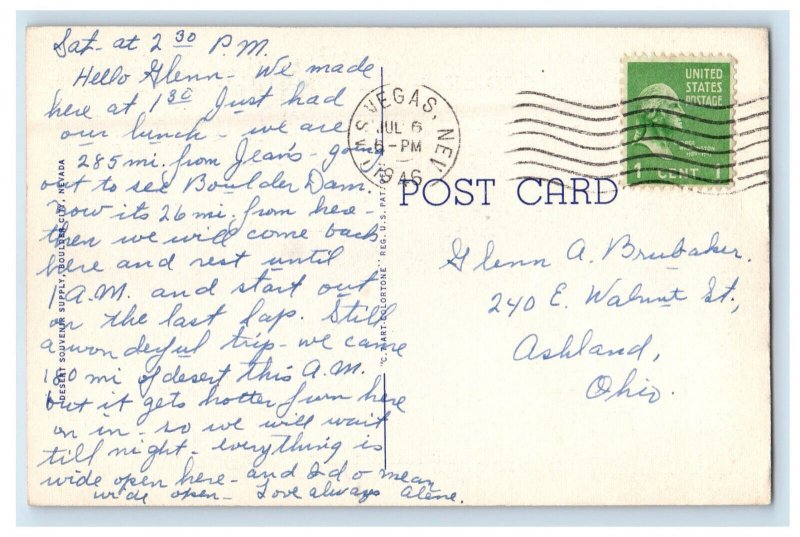 Sat- at 2 30 P.M.
Hello Glenn- We made
here at 1 30 Just had
our lunch- we are
285 mi. from Jean's- going
out to see Boulder Dam.
Now its 26 mi. from here-
then we will come back
here and rest until
1 A.M. and start out
on the last lap. Still
a wonderful trip- we came
180 mi of desert this A.M.
but it gets hotter from here
on in- so we will wait
till night- everything is
wide open here- and I do mean
wide open- Love always Alene.
DESERT SOUVENIR SUPPLY, BOULDER CITY, NEVADA
"C.T. ART-COLORTONE" REG. U.S. PAT.
LAS VEGAS, NEV
JUL 6
6-PM
1946
UNITED
STATES
POSTAGE
1 CENT 1
POST CARD
Glenn A. Brubaker.
240 E. Walnut St.,
Ashland,
Ohio.